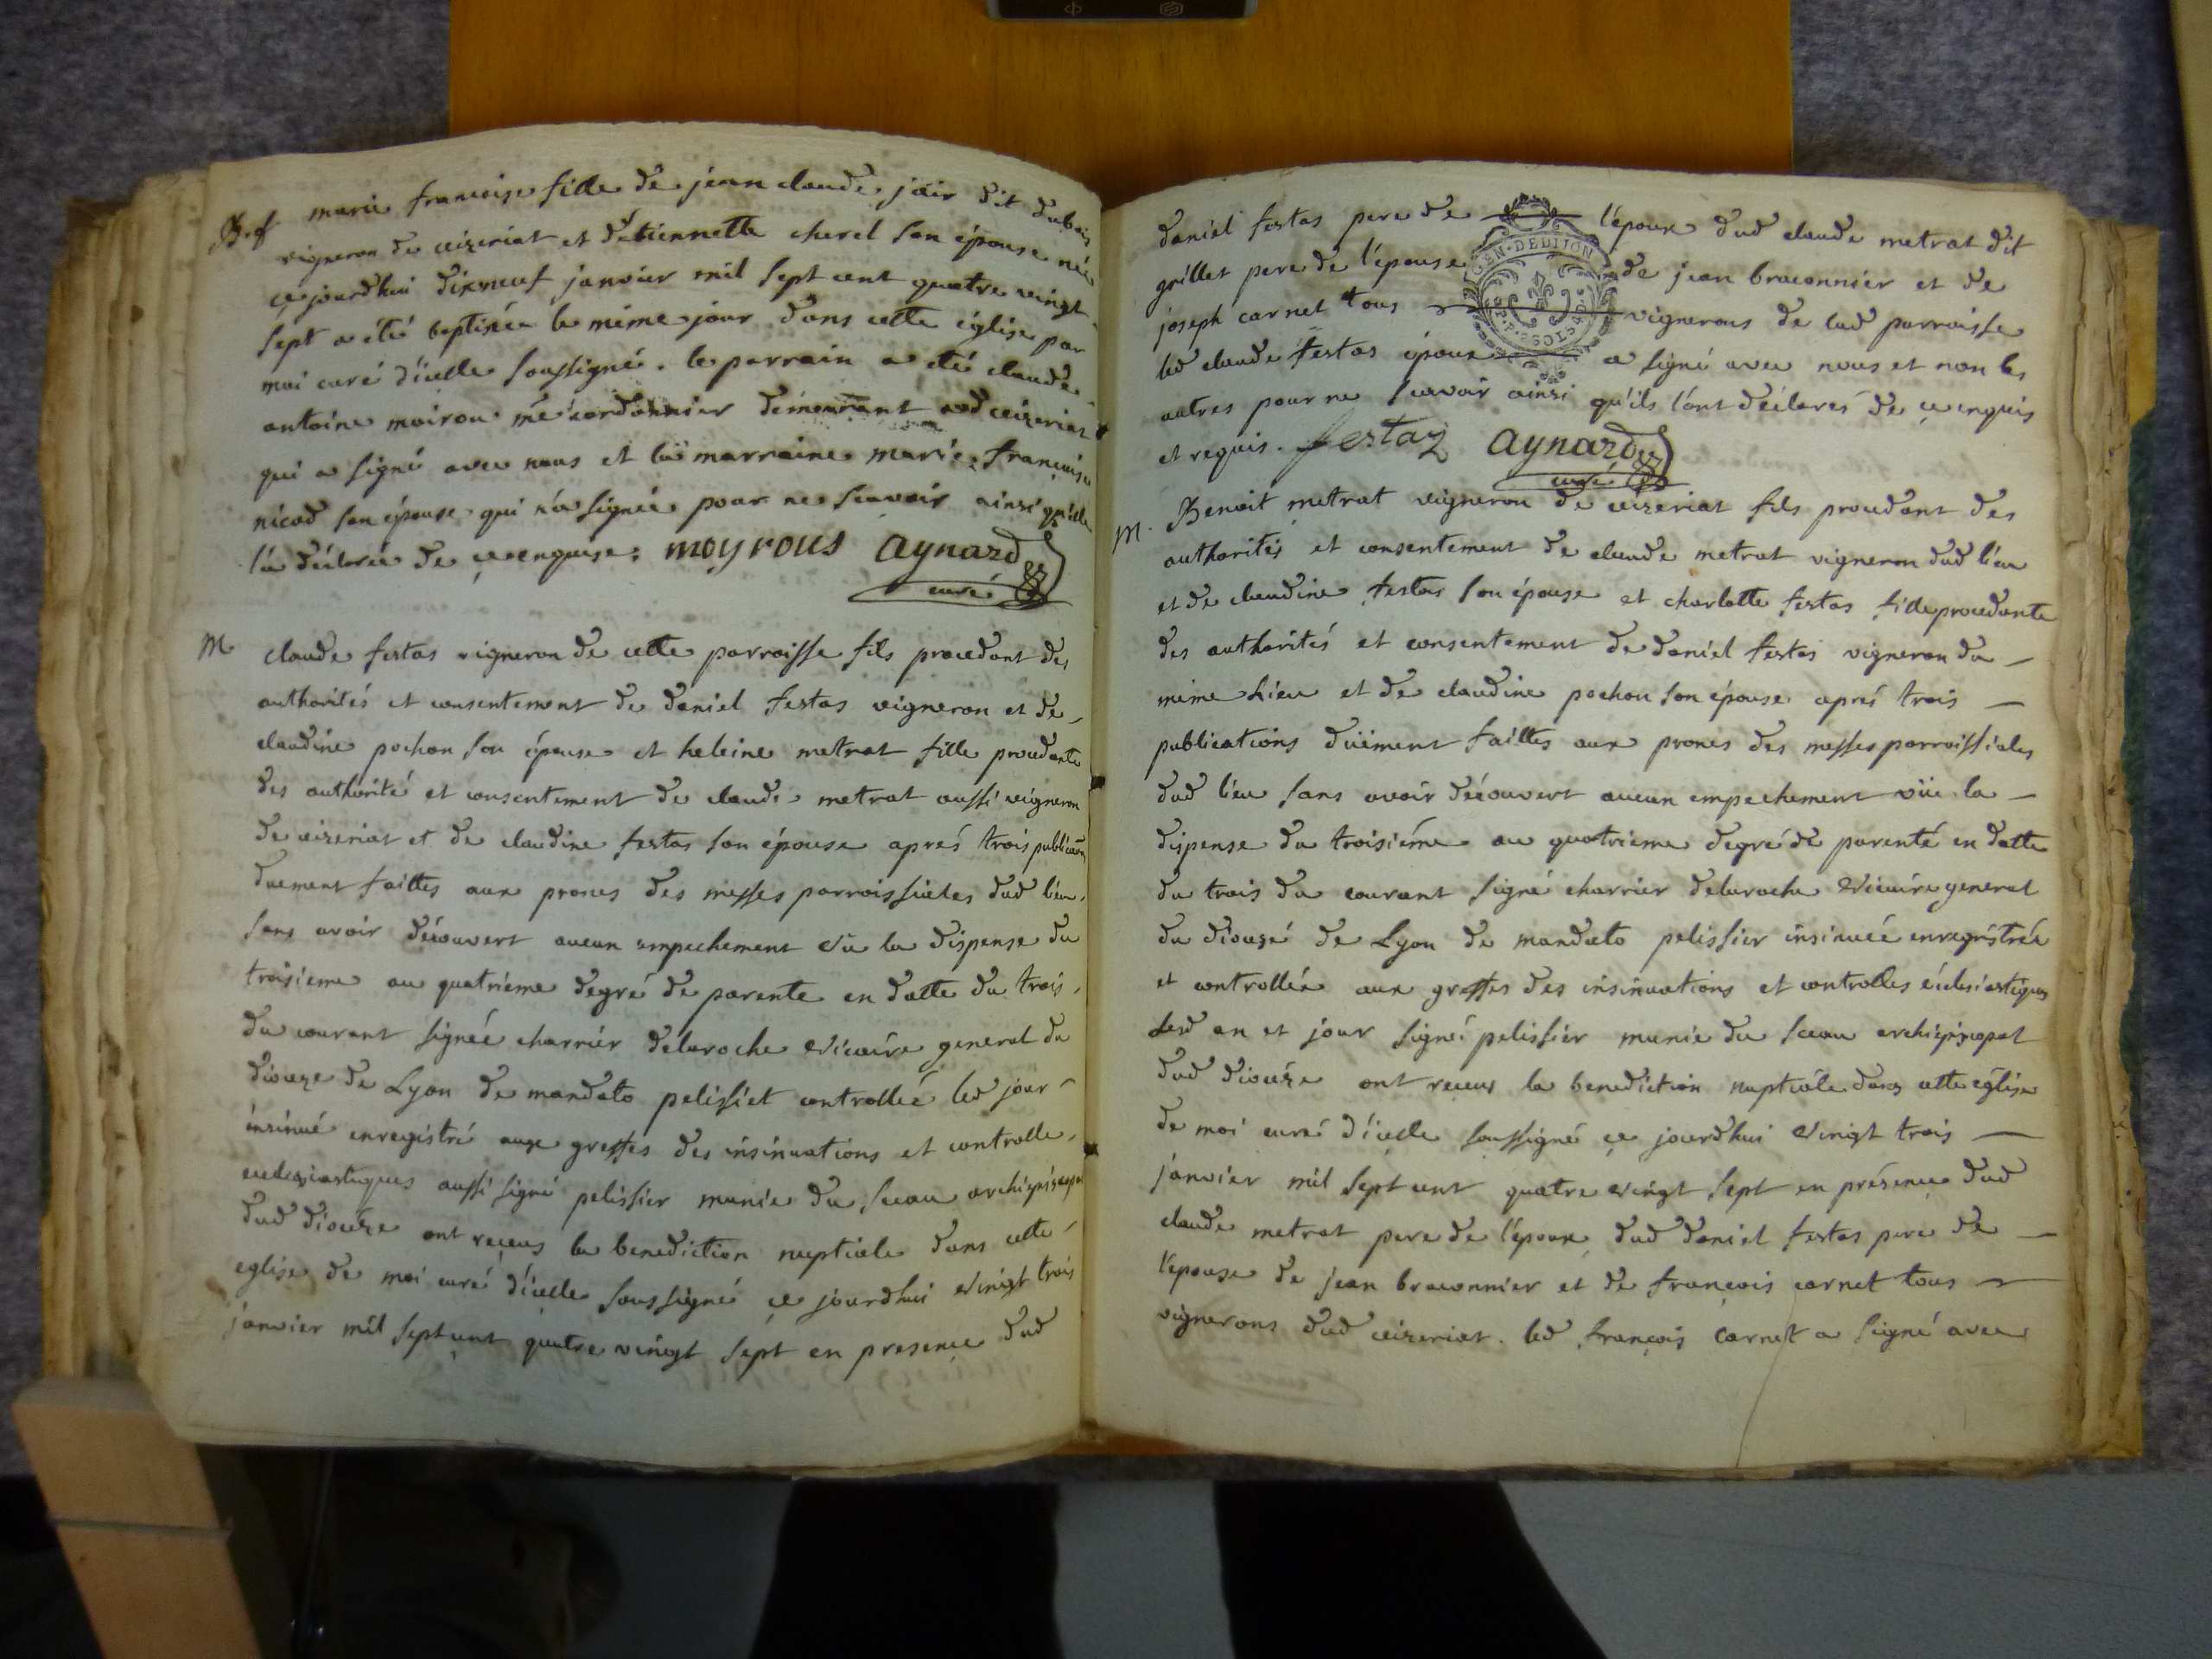 B.f marie francoise fille de jean claude jair dit dubois
vigneron de ceizeriat et détiennette charel son épouse née
ce jourdhui dixneuf janvier mil sept cent quatre vingt
sept a été baptisée le même jour dans cette église par
moi curé d'icelle soussigné. le parrain a été claude
antoine moirou me cordonnier demeurant aud ceizeriat
qui a signé avec nous et la marraine marie françoise
nicod son épouse qui n'a signée pour ne scavoir ainsi qu'elle
l'a déclarée de ce enquise. moyrous aynard
curé
M. claude festas vigneron de cette parroisse fils procédant des
authorités et consentement de daniel festas vigneron et de
claudine pochon son épouse et heleine metrat fille procedante
des authorité et consentement de claude metrat aussi vigneron
de ceizeriat et de claudine festas son épouse aprés trois publicaõn
duement faittes aux prones des messes parroissiales dud lieu
sans avoir découvert aucun empechement vu la dispense du
troisieme au quatriéme degré de parente en datte du trois
du courant signéé charrier delaroche vicaire general du
diocèze de Lyon de mandato pelissiet controlleé led jour
insinué enregistré aux greffes des insinuations et controlle
ecclesiastiques aussi signé pelissier munie du sceau archiepiscopal
dud diocèze ont reçeus la benediction nuptiale dans cette
eglise de moi curé d'icelle soussigné ce jourdhui vingt trois
janvier mil sept cent quatre vingt sept en presençe dud
daniel festas pere de l'époux dud claude metrat dit
GEN. DE DIJON
grillet pere de l'épouse de jean braconnier et de
joseph carnet tous vignerons de lad parroisse
led claude festas époux a signé avec nous et non les
autres pour ne scavoir ainsi qu'ils l'ont déclarés de ce enquis
et requis. festaz aynard
curé
M. Benoit metrat vigneron de ceizeriat fils procedant des
authorités et consentement de claude metrat vigneron dud lieu
et de claudine festas son épouse et charlotte festas fille procedante
des authorités et consentement de daniel festas vigneron du
même Lieu et de claudine pochon son épouse aprés trois
publications düement faittes aux prones des messes parroissiales
dud lieu sans avoir découvert aucun empechement vüe la
dispense du troisiéme au quatrieme degré de parenté en datte
du trois du courant signé charrier delaroche vicaire general
du diocezé de Lyon de mandato pelissier insinueé enregistréé
et controlleé aux greffes des insinuations et controlles écclesiastiques
Lesd an et jour signé pelissier munie du sceau archiepiscopal
dud diocèze ont receus la benediction nuptiale dans cette église
de moi curé d'icelle soussigné ce jourdhui vingt trois
janvier mil sept cent quatre vingt sept en présence dud
claude metrat pere de l'époux dud daniel festas pere de
l'épouse de jean braconnier et de françois carnet tous
vignerons dud ceizeriat. led françois carnet a signé avec